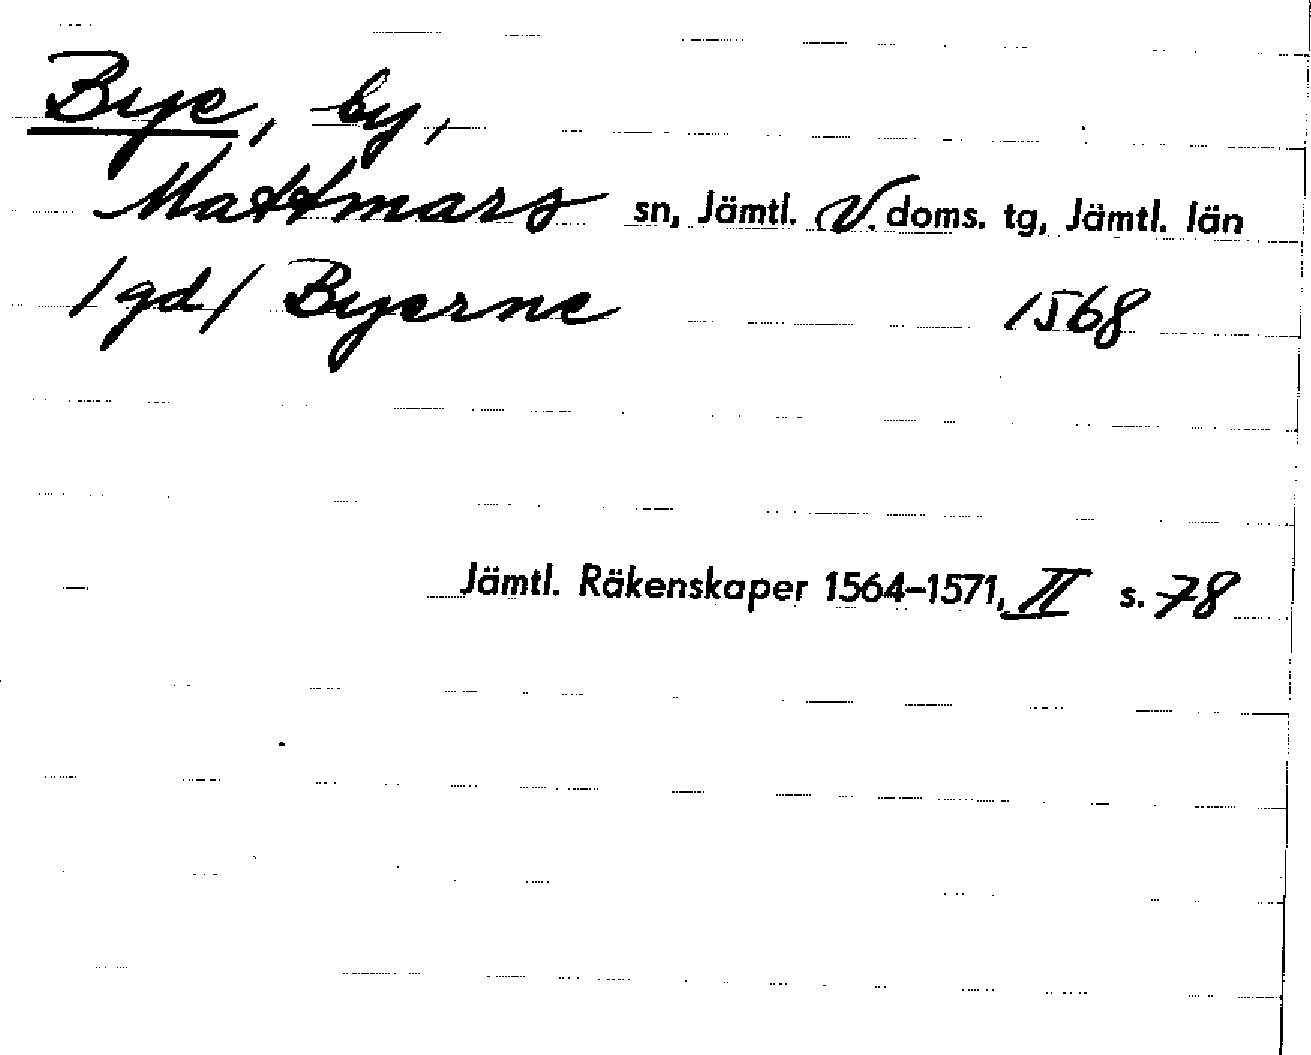 Bye, by,
Mattmars sn, Jämtl. V. doms. tg, Jämtl. län
/gd/ Byerne 1568
Jämtl. Räkenskaper 1564–1571, II s. 78